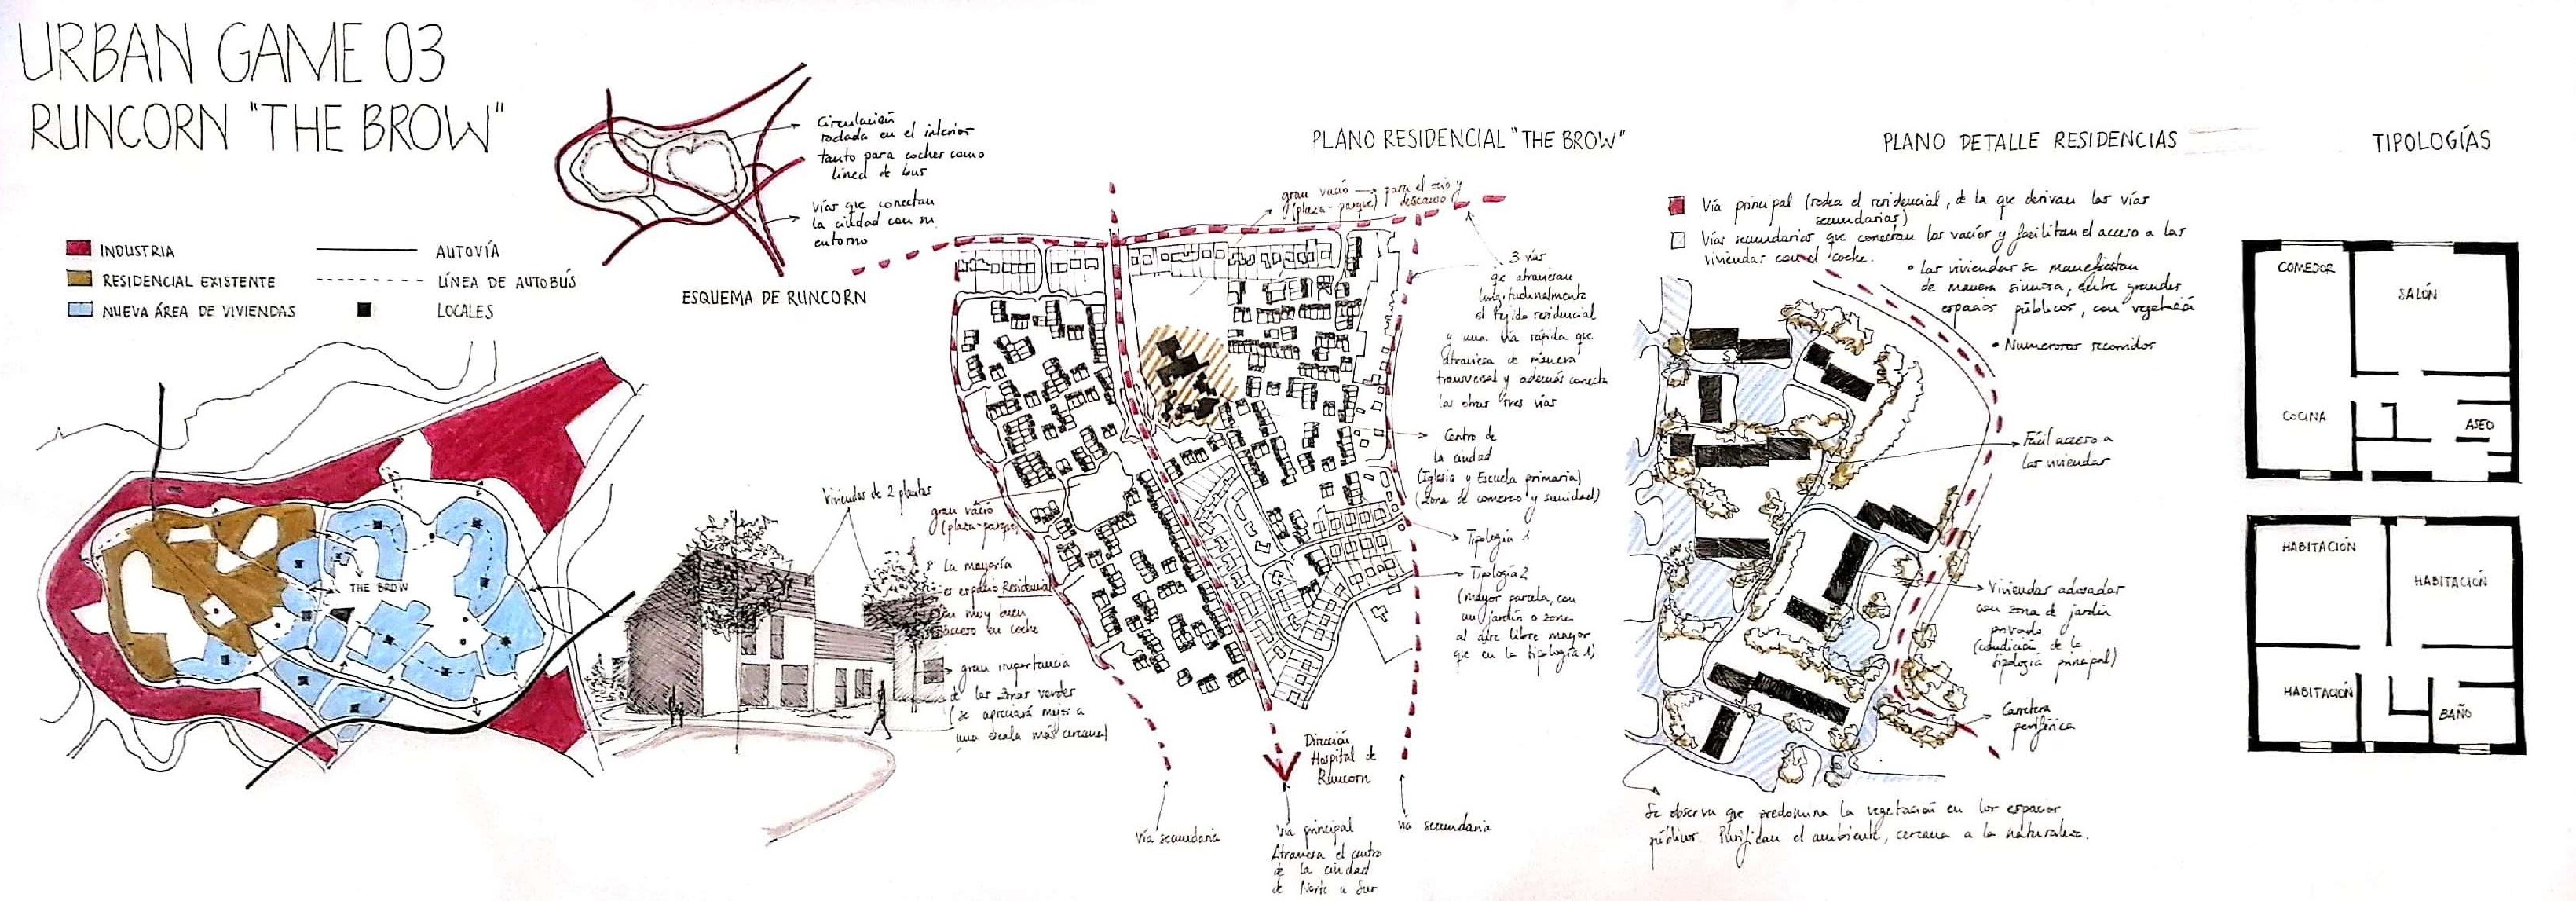 URBAN GAME 03
RUNCORN "THE BROW"
INDUSTRIA
RESIDENCIAL EXISTENTE
NUEVA ÁREA DE VIVIENDAS
AUTOVÍA
LÍNEA DE AUTOBÚS
LOCALES
THE BROW
Circulación
rodada en el interior
tanto para coches como
línea de bus
Vías que conectan
la ciudad con su
entorno
ESQUEMA DE RUNCORN
Viviendas de 2 plantas
PLANO RESIDENCIAL "THE BROW"
gran vacío → para el ocio y
(plaza-parque) descanso
gran vacío
(plaza-parque)
La mayoría
es espacio Residencial
con muy buen
acceso en coche
gran importancia
de las zonas verdes
(se apreciará mejor a
una escala más cercana)
3 vías
que atraviesan
longitudinalmente
el tejido residencial
y una vía rápida que
atraviesa de manera
transversal y además conecta
las otras tres vías
Centro de
la ciudad
(Iglesia y Escuela primaria)
(zona de comercio y sanidad)
Tipología 1
Tipología 2
(mayor parcela, con
un jardín o zona
al aire libre mayor
que en la tipología 1)
Dirección
Hospital de
Runcorn
Vía secundaria
Vía principal
Atraviesa el centro
de la ciudad
de Norte a Sur
vía secundaria
PLANO DETALLE RESIDENCIAS
Vía principal (rodea el residencial, de la que derivan las vías
secundarias)
Vías secundarias que conectan los vacíos y facilitan el acceso a las
viviendas con el coche.
• Las viviendas se manifiestan
de manera sinuosa, entre grandes
espacios públicos, con vegetación
• Numerosos recorridos
Fácil acceso a
las viviendas
Viviendas adosadas
con zona de jardín
privado
(condición de la
tipología principal)
Carretera
periférica
Se observa que predomina la vegetación en los espacios
públicos. Purifican el ambiente, cercana a la naturaleza.
TIPOLOGÍAS
COMEDOR
SALÓN
COCINA
ASEO
HABITACIÓN
HABITACIÓN
HABITACIÓN
BAÑO